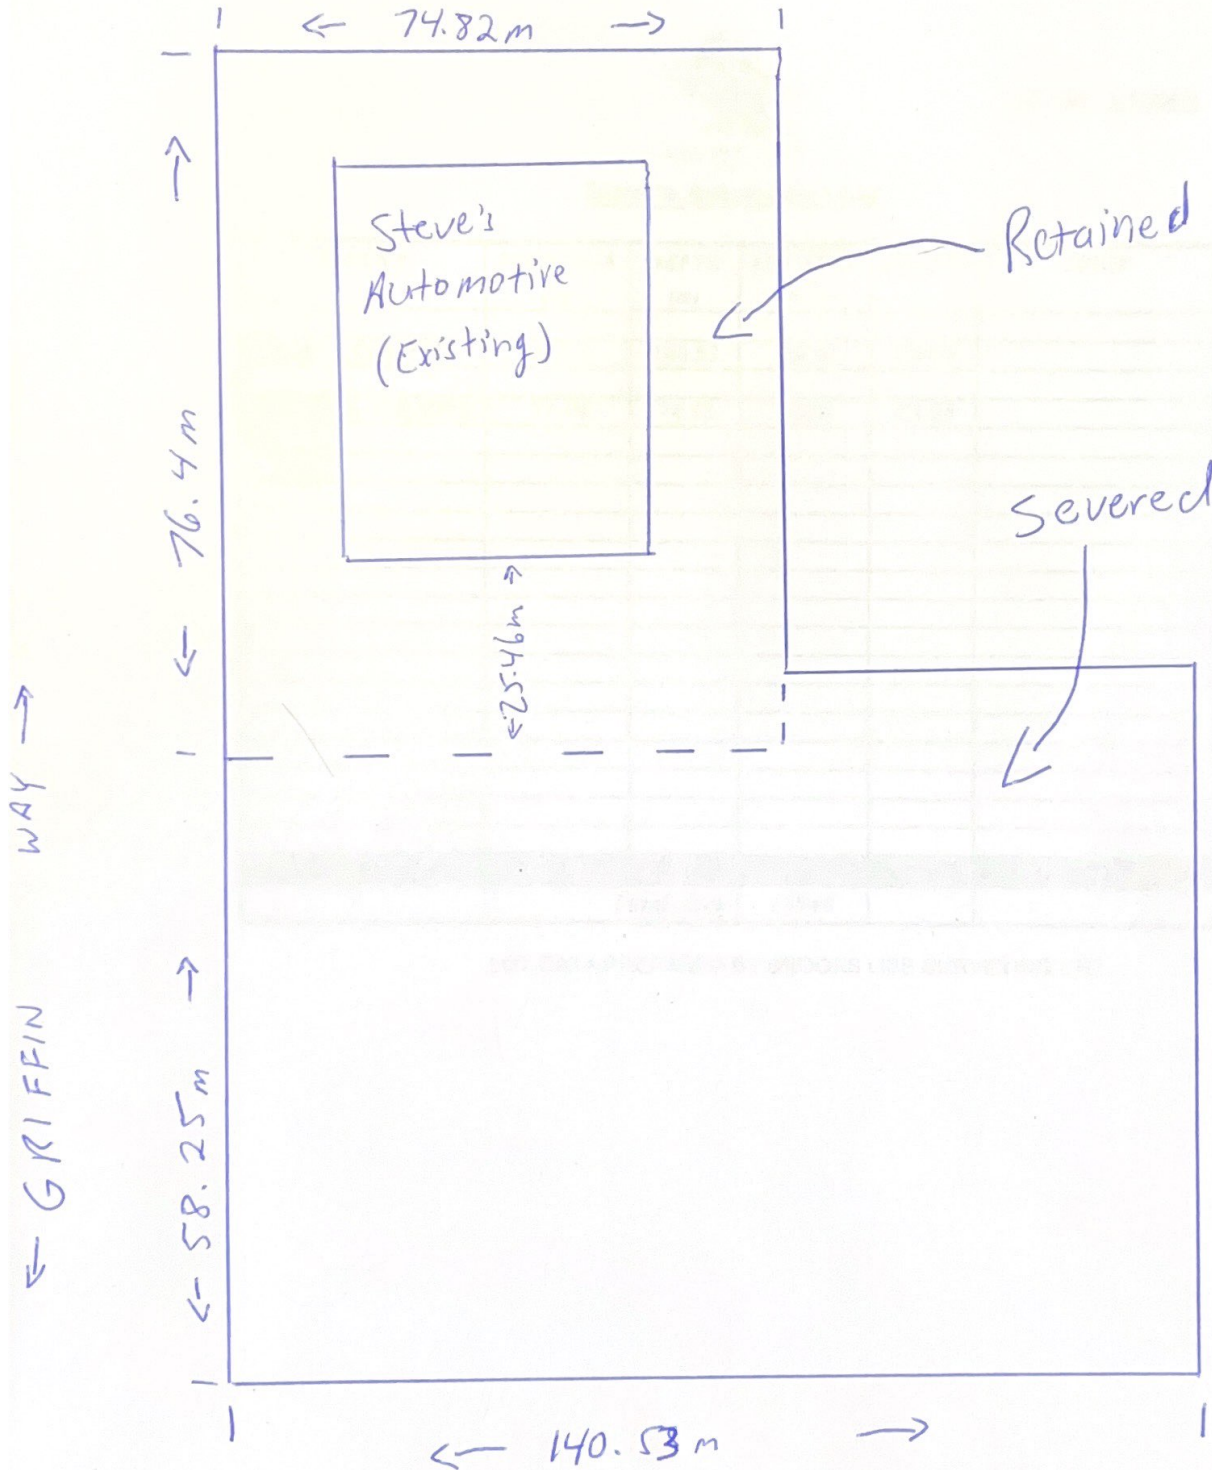 74.82m
Steve's
Automotive
(Existing)
Retained
Severed
76.4m
25.46m
GRIFFIN WAY
58.25m
140.53m